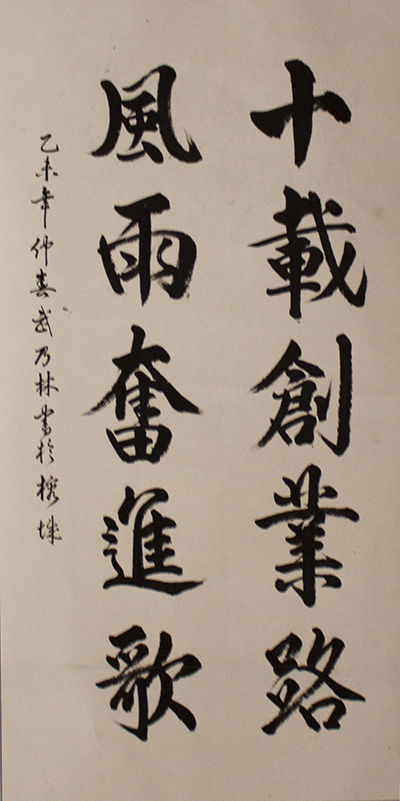 十載創業路
風雨奮進歌
乙未年仲春武乃林書於榕城